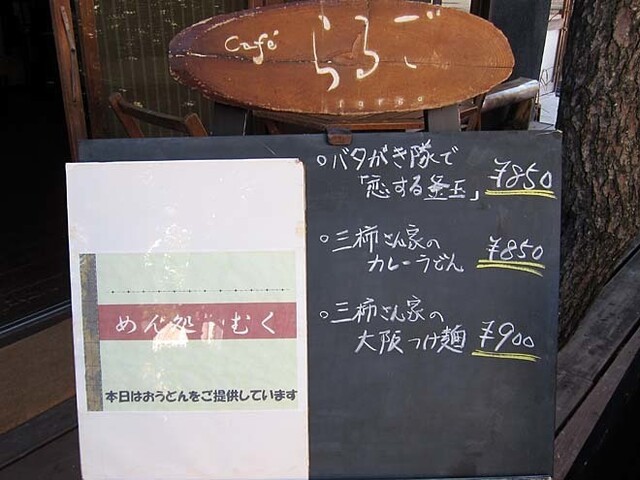 Café らるご
largo
○バタがき隊で
「恋する釜玉」 ¥850
○三柿さん家の
カレーうどん ¥850
○三柿さん家の
大阪つけ麺 ¥900
めん処 むく
本日はおうどんをご提供しています